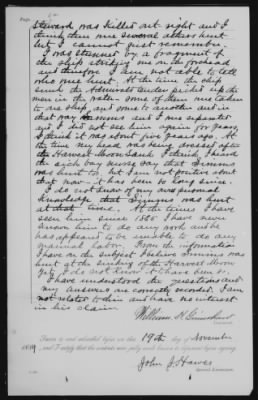 Page
Steward was killed out right and I
think there was several others hurt
but I cannot just remember.
I was stunned by a fragment of
the ship striking me on the forehead
and therefore I am not able to tell
who was hurt. At the time the ship
sunk the Admirals tender picked up the
men in the water some of them was taken
to one ship and some to another and in
that way Simmons and I was separated
and I did not see him again for years.
I think it was about five years ago. At
the time my head was being dressed after
the Harvest Moon sank I think I heard
the sick bay nurse say that Simmons
was hurt too but I am not positive about
that now. It has been so long since.
I do not know of my own personal
knowledge that Simmons was hurt
at that time. At the times I have
seen him since 1885 I have never
known him to do any work and he
has appeared to be unable to do any
manual labor. From the information
I have on the subject I believe Simmons was
hurt at the sinking of the Harvest Moon
yet I do not know it to have been so.
I have understood the questions and
my answers are correctly recorded. I am
not related to him and have no interest
in his claim
William H.
Deponent.
Sworn to and subscribed before me this 19th day of November
188 , and I certify that the contents were fully made known to deponent before signing.
John J. Hawes
Special Examiner.